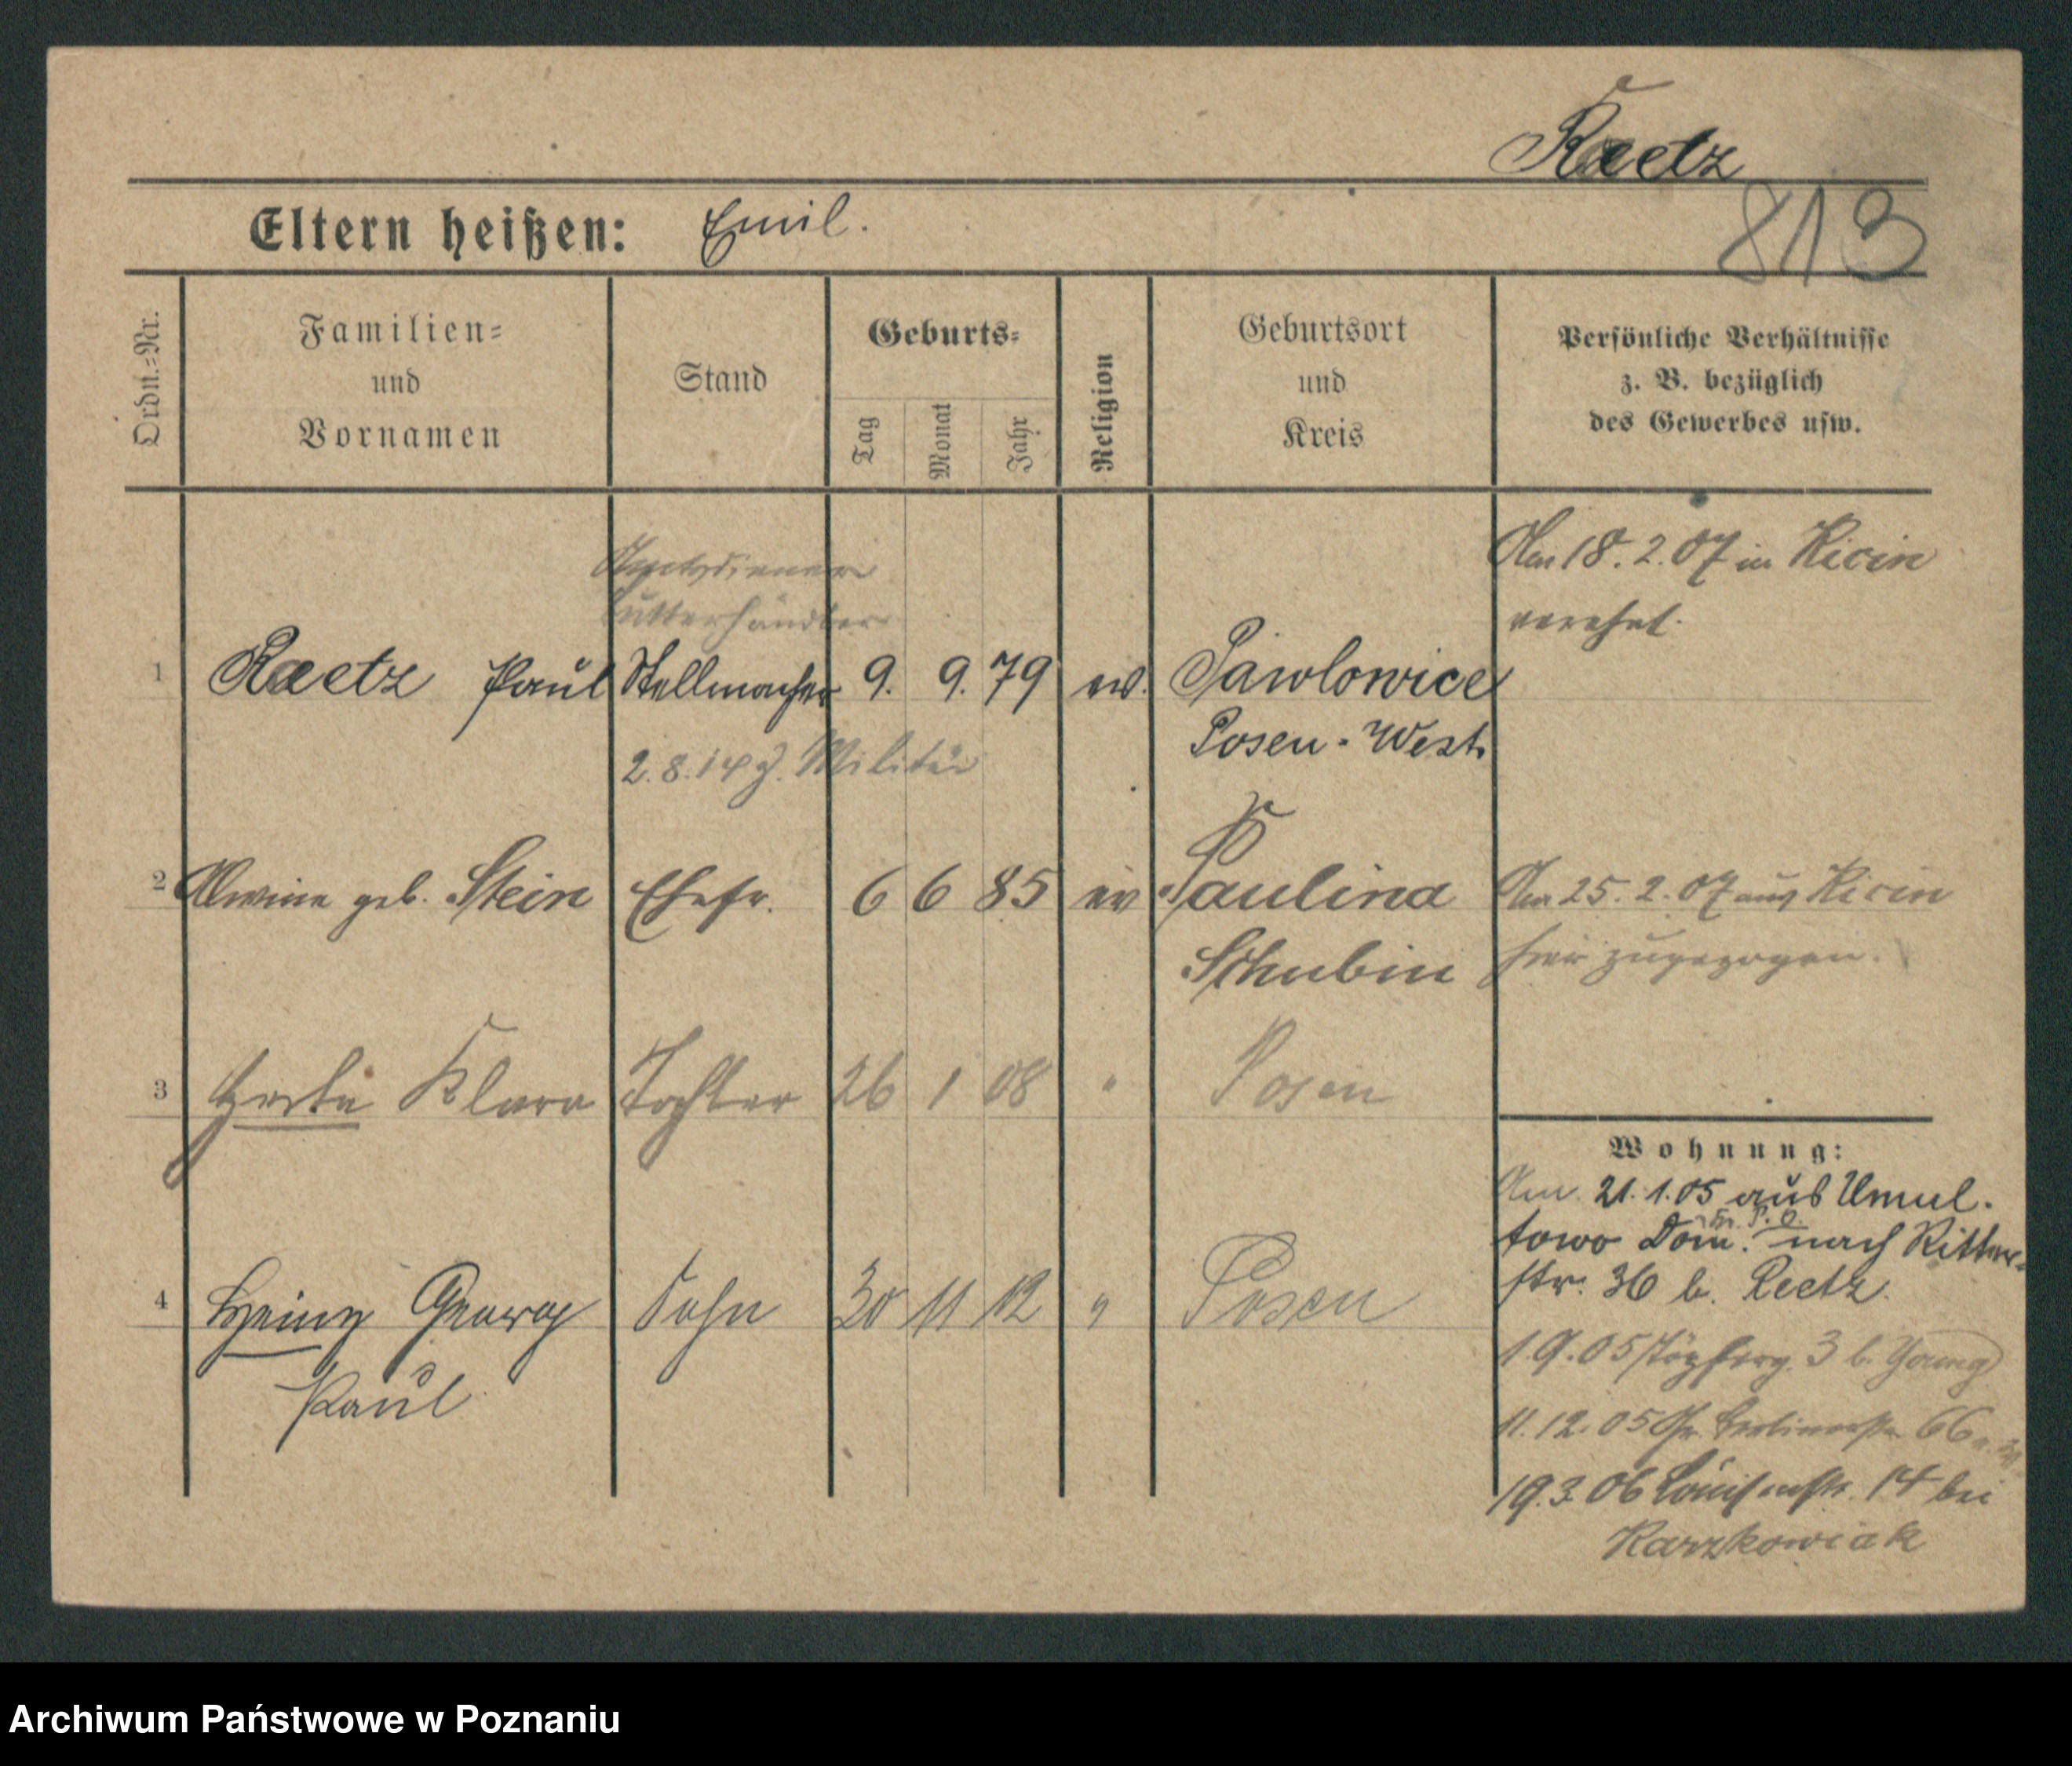 Raetz
813
Eltern heißen: Emil.
Ordn.-Nr.
Familien-
und
Vornamen
Stand
Geburts-
Tag
Monat
Jahr
Religion
Geburtsort
und
Kreis
Persönliche Verhältnisse
z. B. bezüglich
des Gewerbes usw.
Am 18. 2. 07 in Kicin
verehel.
1 Raetz Paul Stellmacher 9. 9. 79 ev. Pawlowice
Posen-West.
2. 8. 14 z. Militär
2 Alwine geb. Stein Ehefr. 6 6 85 ev Paulina
Schubin
Am 25. 2. 07 aus Kicin
hier zugezogen.
3 Herta Klara Tochter 26 1 08 " Posen
4 Heinz Georg Sohn 30 11 12 " Posen
Paul
Wohnung:
Am 21. 1. 05 aus Umul-
towo Dom. Kr. P. O. nach Ritter-
str. 36 b. Reetz.
1. 9. 05 3 b. Young
11. 12. 05 Berlinerstr. 66
19. 3. 06 Louisenstr. 14 bei
Karzkowiak
Archiwum Państwowe w Poznaniu